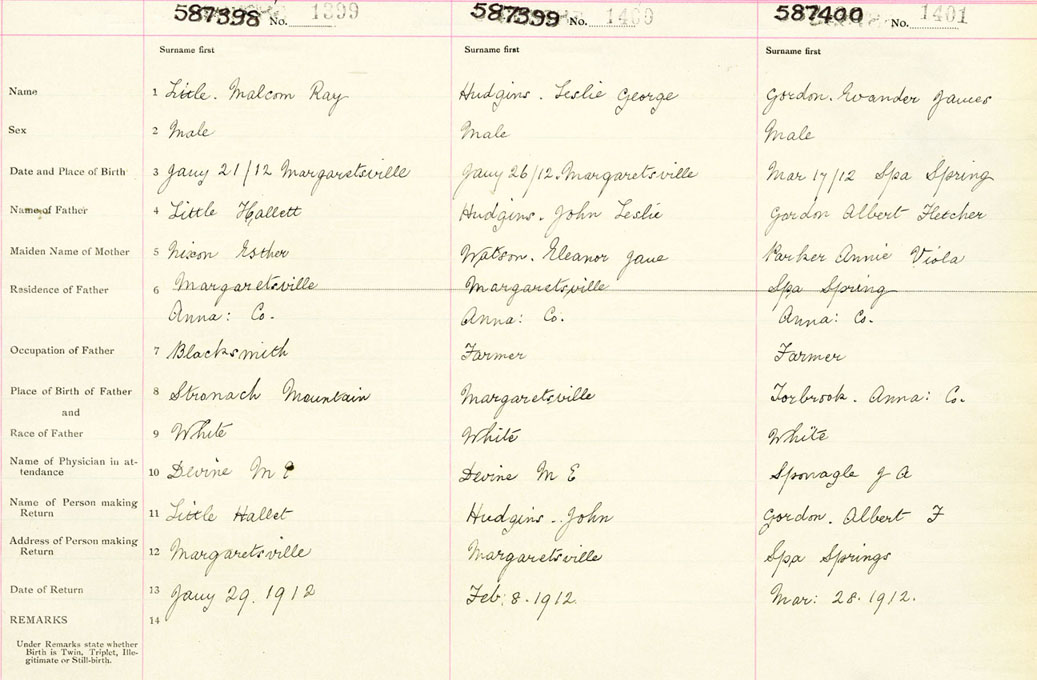 587398 No. 1399 587399 No. 1400 587400 No. 1401
Surname first Surname first Surname first
Name 1 Little. Malcom Ray Hudgins. Leslie George Gordon. Evander James
Sex 2 Male Male Male
Date and Place of Birth 3 Jany 21/12 Margaretsville Jany 26/12. Margaretsville Mar 17/12 Spa Spring
Name of Father 4 Little Hallett Hudgins. John Leslie Gordon Albert Fletcher
Maiden Name of Mother 5 Nixon Esther Watson. Eleanor Jane Parker Annie Viola
Residence of Father 6 Margaretsville Margaretsville Spa Spring
Anna: Co. Anna: Co. Anna: Co.
Occupation of Father 7 Blacksmith Farmer Farmer
Place of Birth of Father 8 Stronach Mountain Margaretsville Torbrook. Anna: Co.
and
Race of Father 9 White White White
Name of Physician in at-
tendance 10 Devine M E Devine M E Sponagle J A
Name of Person making
Return 11 Little Hallet Hudgins. John Gordon. Albert F
Address of Person making
Return 12 Margaretsville Margaretsville Spa Springs
Date of Return 13 Jany 29. 1912 Feb: 8. 1912. Mar: 28. 1912.
REMARKS 14
Under Remarks state whether
Birth is Twin, Triplet, Ille-
gitimate or Still-birth.